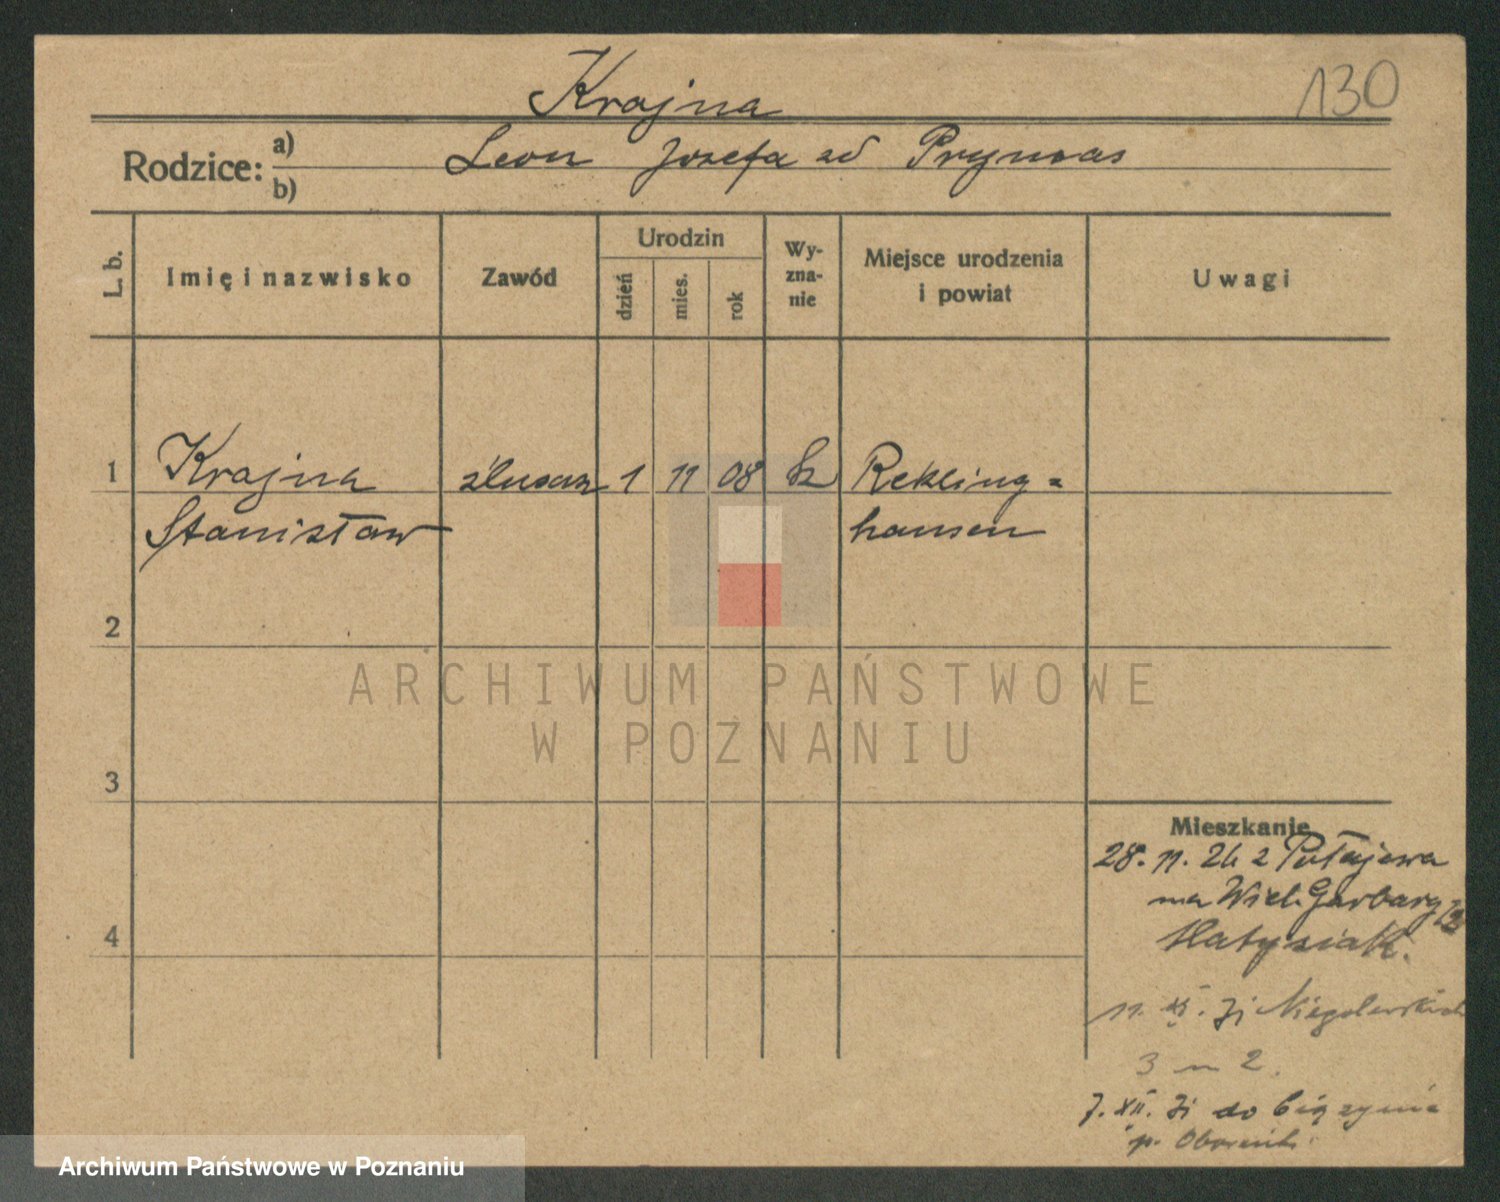 Krajna
130
Rodzice: a) Leon Józefa zd Prymas
b)
L. b.
Imię i nazwisko
Zawód
Urodzin
dzień
mies.
rok
Wy-
zna-
nie
Miejsce urodzenia
i powiat
Uwagi
1 Krajna ślusarz 1 11 08 Rekling=
Stanisław hausen
2
3
4
ARCHIWUM PAŃSTWOWE
W POZNANIU
Mieszkanie
28. 11. 26 z Połajewa
na Wielk. Garbary
Matysiak.
11. XI. Niegolewskich
3 m 2.
7. XII. do
p.
Archiwum Państwowe w Poznaniu